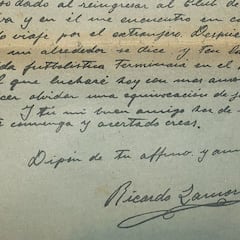 dado al reingresar al Club de
va y en él me encuentro en co
do viaje por el extranjero. Despué
mi alrededor se dice y tan lo
da futbolística terminará en el
l que lucharé hoy con mas amor
cer olvidar una equivocación de ju
Y tú mi buen amigo haz de
e convenga y acertado creas.
Dispón de tu affmo. y am
Ricardo Zamor